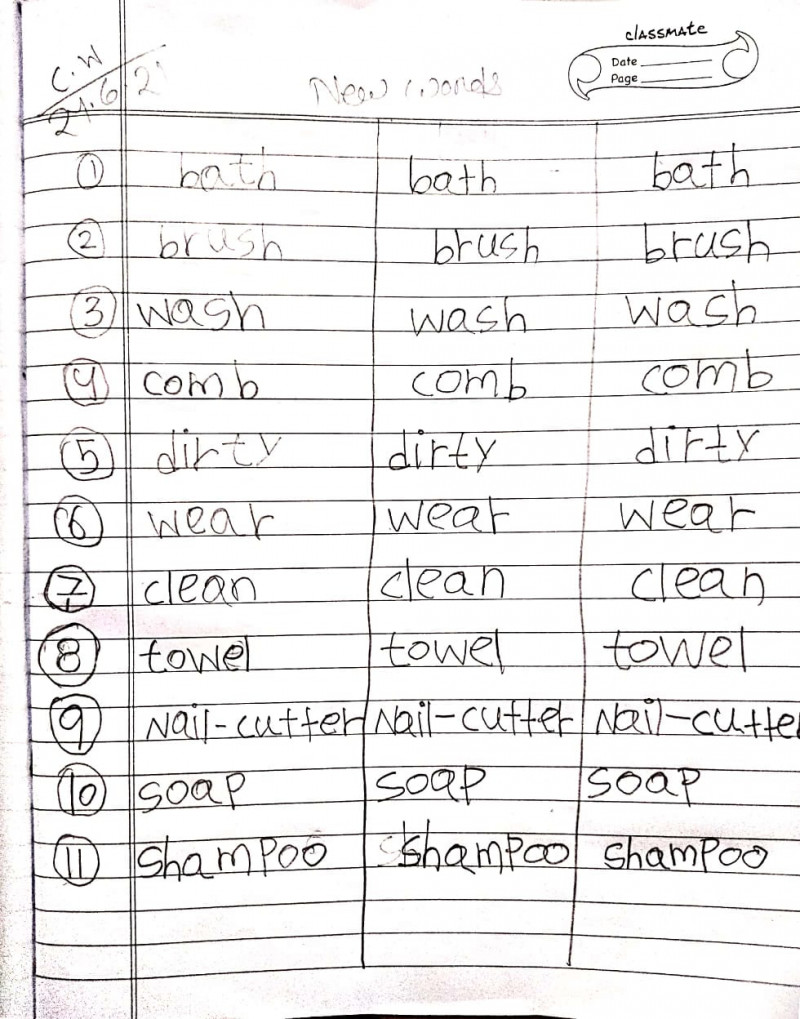 classmate
Date
Page
C.W
21.6.2
New words
1 bath bath bath
2 brush brush brush
3 wash wash wash
4 comb comb comb
5 dirty dirty dirty
6 wear wear wear
7 clean clean clean
8 towel towel towel
9 Nail-cutter Nail-cutter Nail-cutte
10 soap soap soap
11 shampoo shampoo shampoo